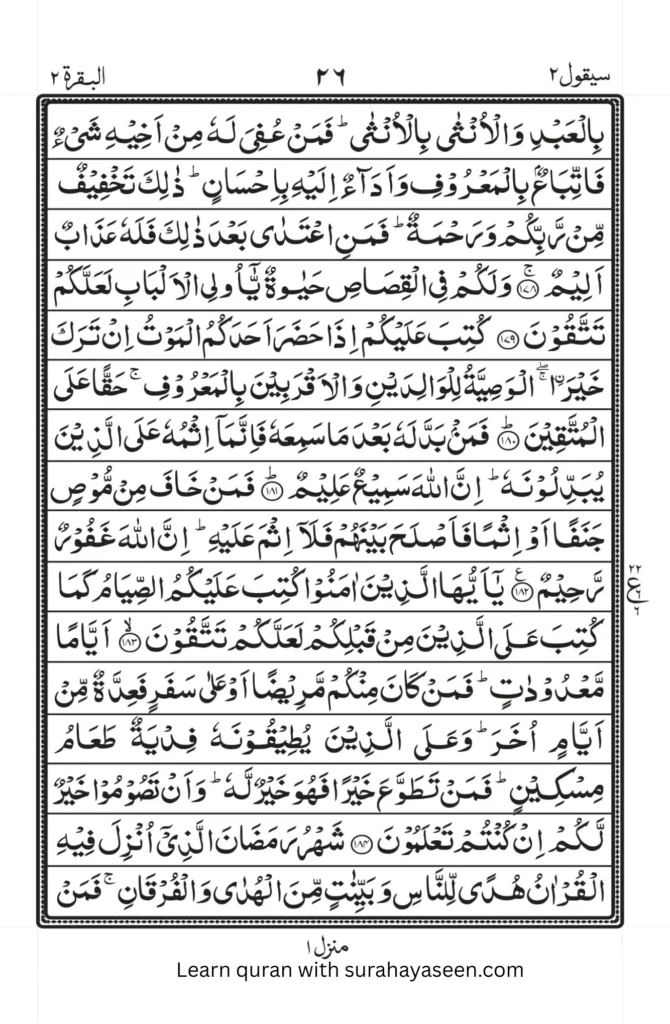 سيقول ٢ ٢٦ البقرة ٢
بِالۡعَبۡدِ وَالۡاُنۡثٰى بِالۡاُنۡثٰىؕ فَمَنۡ عُفِىَ لَهٗ مِنۡ اَخِيۡهِ شَىۡءٌ
فَاتِّبَاعٌۢ بِالۡمَعۡرُوۡفِ وَاَدَآءٌ اِلَيۡهِ بِاِحۡسَانٍؕ ذٰلِكَ تَخۡفِيۡفٌ
مِّنۡ رَّبِّكُمۡ وَرَحۡمَةٌؕ فَمَنِ اعۡتَدٰى بَعۡدَ ذٰلِكَ فَلَهٗ عَذَابٌ
اَلِيۡمٌۚ ﴿۱۷۸﴾ وَلَكُمۡ فِى الۡقِصَاصِ حَيٰوةٌ يّٰٓاُولِى الۡاَلۡبَابِ لَعَلَّكُمۡ
تَتَّقُوۡنَ ﴿۱۷۹﴾ كُتِبَ عَلَيۡكُمۡ اِذَا حَضَرَ اَحَدَكُمُ الۡمَوۡتُ اِنۡ تَرَكَ
خَيۡرَاۖۚ اۨلۡوَصِيَّةُ لِلۡوَالِدَيۡنِ وَالۡاَقۡرَبِيۡنَ بِالۡمَعۡرُوۡفِۚ حَقًّا عَلَى
الۡمُتَّقِيۡنَؕ ﴿۱۸۰﴾ فَمَنۡۢ بَدَّلَهٗ بَعۡدَ مَا سَمِعَهٗ فَاِنَّمَاۤ اِثۡمُهٗ عَلَى الَّذِيۡنَ
يُبَدِّلُوۡنَهٗؕ اِنَّ اللّٰهَ سَمِيۡعٌ عَلِيۡمٌؕ ﴿۱۸۱﴾ فَمَنۡ خَافَ مِنۡ مُّوۡصٍ
جَنَفًا اَوۡ اِثۡمًا فَاَصۡلَحَ بَيۡنَهُمۡ فَلَاۤ اِثۡمَ عَلَيۡهِؕ اِنَّ اللّٰهَ غَفُوۡرٌ
رَّحِيۡمٌ ﴿۱۸۲﴾ يٰٓاَيُّهَا الَّذِيۡنَ اٰمَنُوۡا كُتِبَ عَلَيۡکُمُ الصِّيَامُ کَمَا
كُتِبَ عَلَى الَّذِيۡنَ مِنۡ قَبۡلِکُمۡ لَعَلَّكُمۡ تَتَّقُوۡنَۙ ﴿۱۸۳﴾ اَيَّامًا
مَّعۡدُوۡدٰتٍؕ فَمَنۡ كَانَ مِنۡكُمۡ مَّرِيۡضًا اَوۡ عَلٰى سَفَرٍ فَعِدَّةٌ مِّنۡ
اَيَّامٍ اُخَرَؕ وَعَلَى الَّذِيۡنَ يُطِيۡقُوۡنَهٗ فِدۡيَةٌ طَعَامُ
مِسۡكِيۡنٍؕ فَمَنۡ تَطَوَّعَ خَيۡرًا فَهُوَ خَيۡرٌ لَّهٗؕ وَاَنۡ تَصُوۡمُوۡا خَيۡرٌ
لَّـکُمۡ اِنۡ كُنۡتُمۡ تَعۡلَمُوۡنَ ﴿۱۸۴﴾ شَهۡرُ رَمَضَانَ الَّذِىۡٓ اُنۡزِلَ فِيۡهِ
الۡقُرۡاٰنُ هُدًى لِّلنَّاسِ وَ بَيِّنٰتٍ مِّنَ الۡهُدٰى وَالۡفُرۡقَانِۚ فَمَنۡ
٢٢
ع ٦
٦
منزل ١
Learn quran with surahayaseen.com